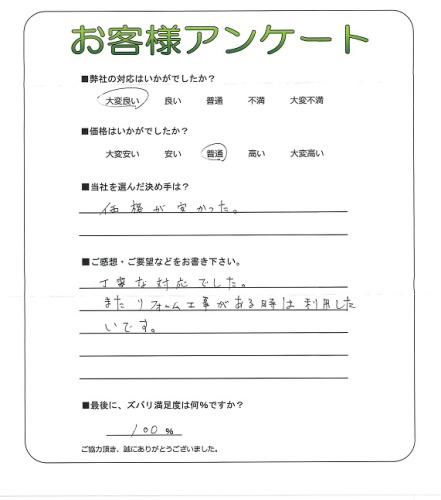 お客様アンケート
■弊社の対応はいかがでしたか？
大変良い 良い 普通 不満 大変不満
■価格はいかがでしたか？
大変安い 安い 普通 高い 大変高い
■当社を選んだ決め手は？
価格が安かった。
■ご感想・ご要望などをお書き下さい。
丁寧な対応でした。
またリフォーム工事がある時は利用した
いです。
■最後に、ズバリ満足度は何％ですか？
100 %
ご協力頂き、誠にありがとうございました。